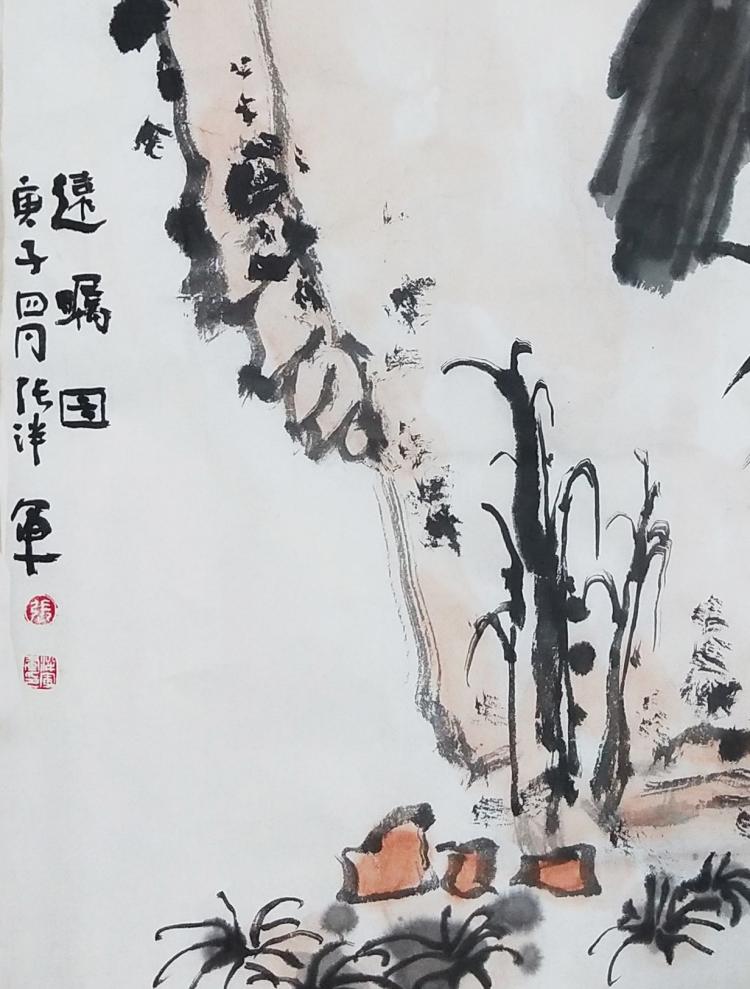 遠瞩图
庚子四月张洋軍
張